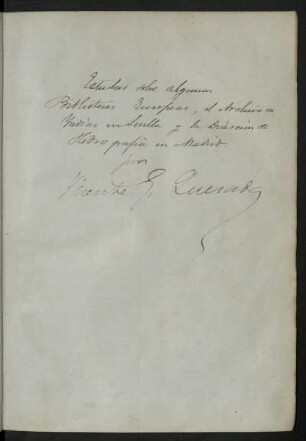 Estudios sobre algunas
Bibliotecas Europeas, el Archivo de
Indias en Sevilla y la Dirección de
Hidrografía en Madrid
por
Vicente G. Quesada